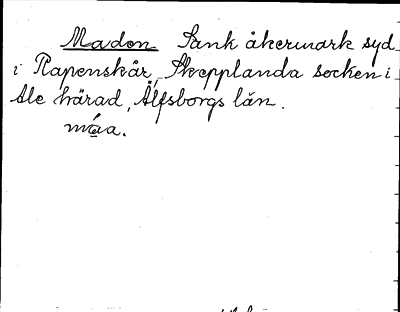 Maden Sank åkermark syd
i Rapenskär, Skepplanda socken i
Ale härad, Älfsborgs län.
máa.